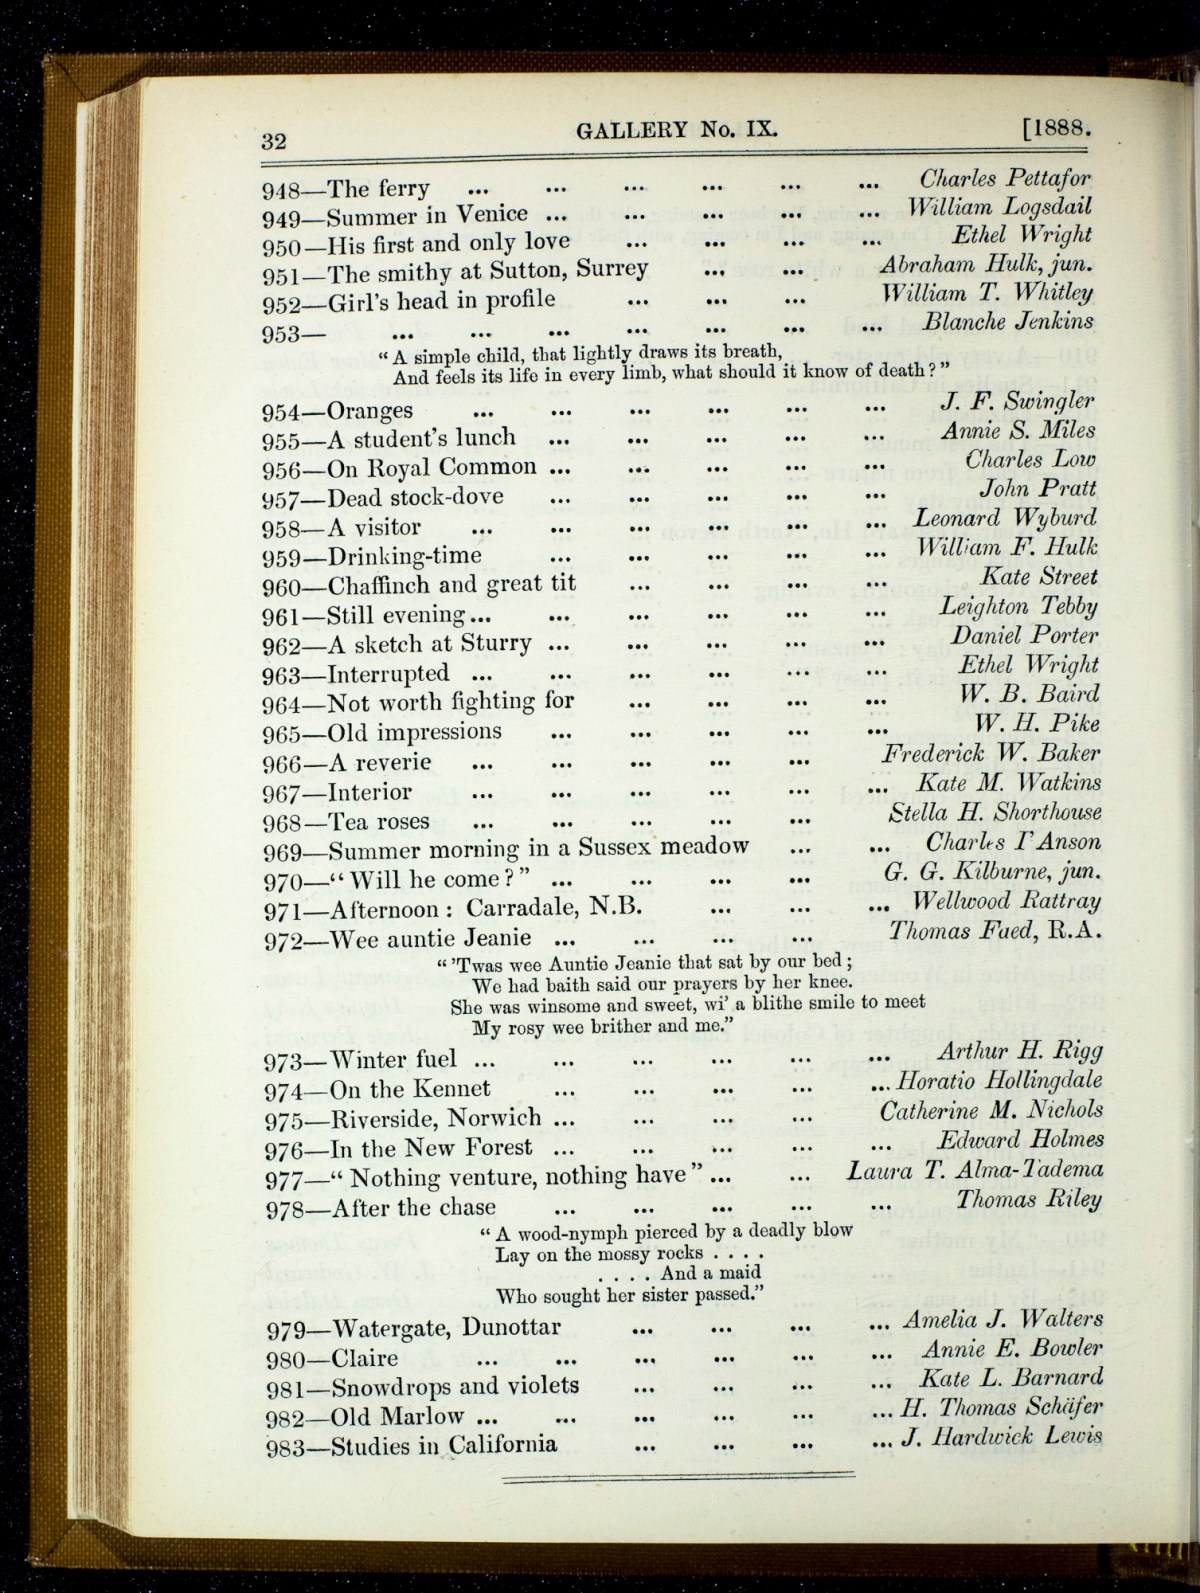 32 GALLERY No. IX. [1888.
948—The ferry ... ... ... ... ... ... Charles Pettafor
949—Summer in Venice ... ... ... ... ... William Logsdail
950—His first and only love ... ... ... ... Ethel Wright
951—The smithy at Sutton, Surrey ... ... Abraham Hulk, jun.
952—Girl's head in profile ... ... ... William T. Whitley
953— ... ... ... ... ... ... ... Blanche Jenkins
“ A simple child, that lightly draws its breath,
And feels its life in every limb, what should it know of death ? ”
954—Oranges ... ... ... ... ... ... J. F. Swingler
955—A student's lunch ... ... ... ... ... Annie S. Miles
956—On Royal Common ... ... ... ... ... Charles Low
957—Dead stock-dove ... ... ... ... ... John Pratt
958—A visitor ... ... ... ... ... ... Leonard Wyburd
959—Drinking-time ... ... ... ... ... William F. Hulk
960—Chaffinch and great tit ... ... ... ... Kate Street
961—Still evening... ... ... ... ... ... Leighton Tebby
962—A sketch at Sturry ... ... ... ... ... Daniel Porter
963—Interrupted ... ... ... ... ... ... Ethel Wright
964—Not worth fighting for ... ... ... ... W. B. Baird
965—Old impressions ... ... ... ... ... W. H. Pike
966—A reverie ... ... ... ... ... Frederick W. Baker
967—Interior ... ... ... ... ... ... Kate M. Watkins
968—Tea roses ... ... ... ... ... Stella H. Shorthouse
969—Summer morning in a Sussex meadow ... ... Charles I'Anson
970—“ Will he come ? ” ... ... ... ... G. G. Kilburne, jun.
971—Afternoon : Carradale, N.B. ... ... ... Wellwood Rattray
972—Wee auntie Jeanie ... ... ... ... Thomas Faed, R.A.
“ 'Twas wee Auntie Jeanie that sat by our bed ;
We had baith said our prayers by her knee.
She was winsome and sweet, wi' a blithe smile to meet
My rosy wee brither and me.”
973—Winter fuel ... ... ... ... ... ... Arthur H. Rigg
974—On the Kennet ... ... ... ... ... Horatio Hollingdale
975—Riverside, Norwich ... ... ... ... Catherine M. Nichols
976—In the New Forest ... ... ... ... ... Edward Holmes
977—“ Nothing venture, nothing have ” ... ... Laura T. Alma-Tadema
978—After the chase ... ... ... ... ... Thomas Riley
“ A wood-nymph pierced by a deadly blow
Lay on the mossy rocks . . . .
. . . . And a maid
Who sought her sister passed.”
979—Watergate, Dunottar ... ... ... ... Amelia J. Walters
980—Claire ... ... ... ... ... ... Annie E. Bowler
981—Snowdrops and violets ... ... ... ... Kate L. Barnard
982—Old Marlow ... ... ... ... ... ... H. Thomas Schäfer
983—Studies in California ... ... ... ... J. Hardwick Lewis